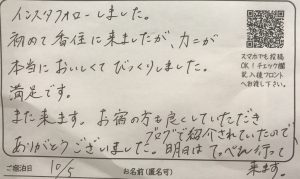 インスタフォローしました。
初めて香住に来ましたが、カニが
本当においしくてびっくりしました。
満足です。
また来ます。お宿の方も良くしていただき
ありがとうございました。
ブログで紹介されていたので
明日はてっぺん行って
来ます。
スマホでも投稿
OK!チェック欄
記入後フロント
へお渡し下さい。
ご宿泊日 10/5 お名前(匿名可)